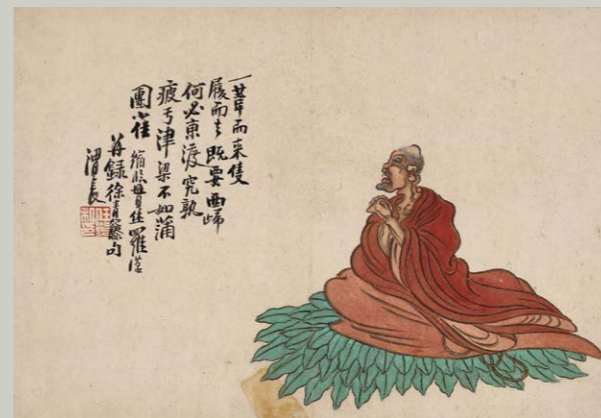 一葦而来隻
履而去既要西歸
何必東渡究孰
疲于津梁不如蒲
團 縮臨貫休羅漢
并錄徐青藤句
渭長